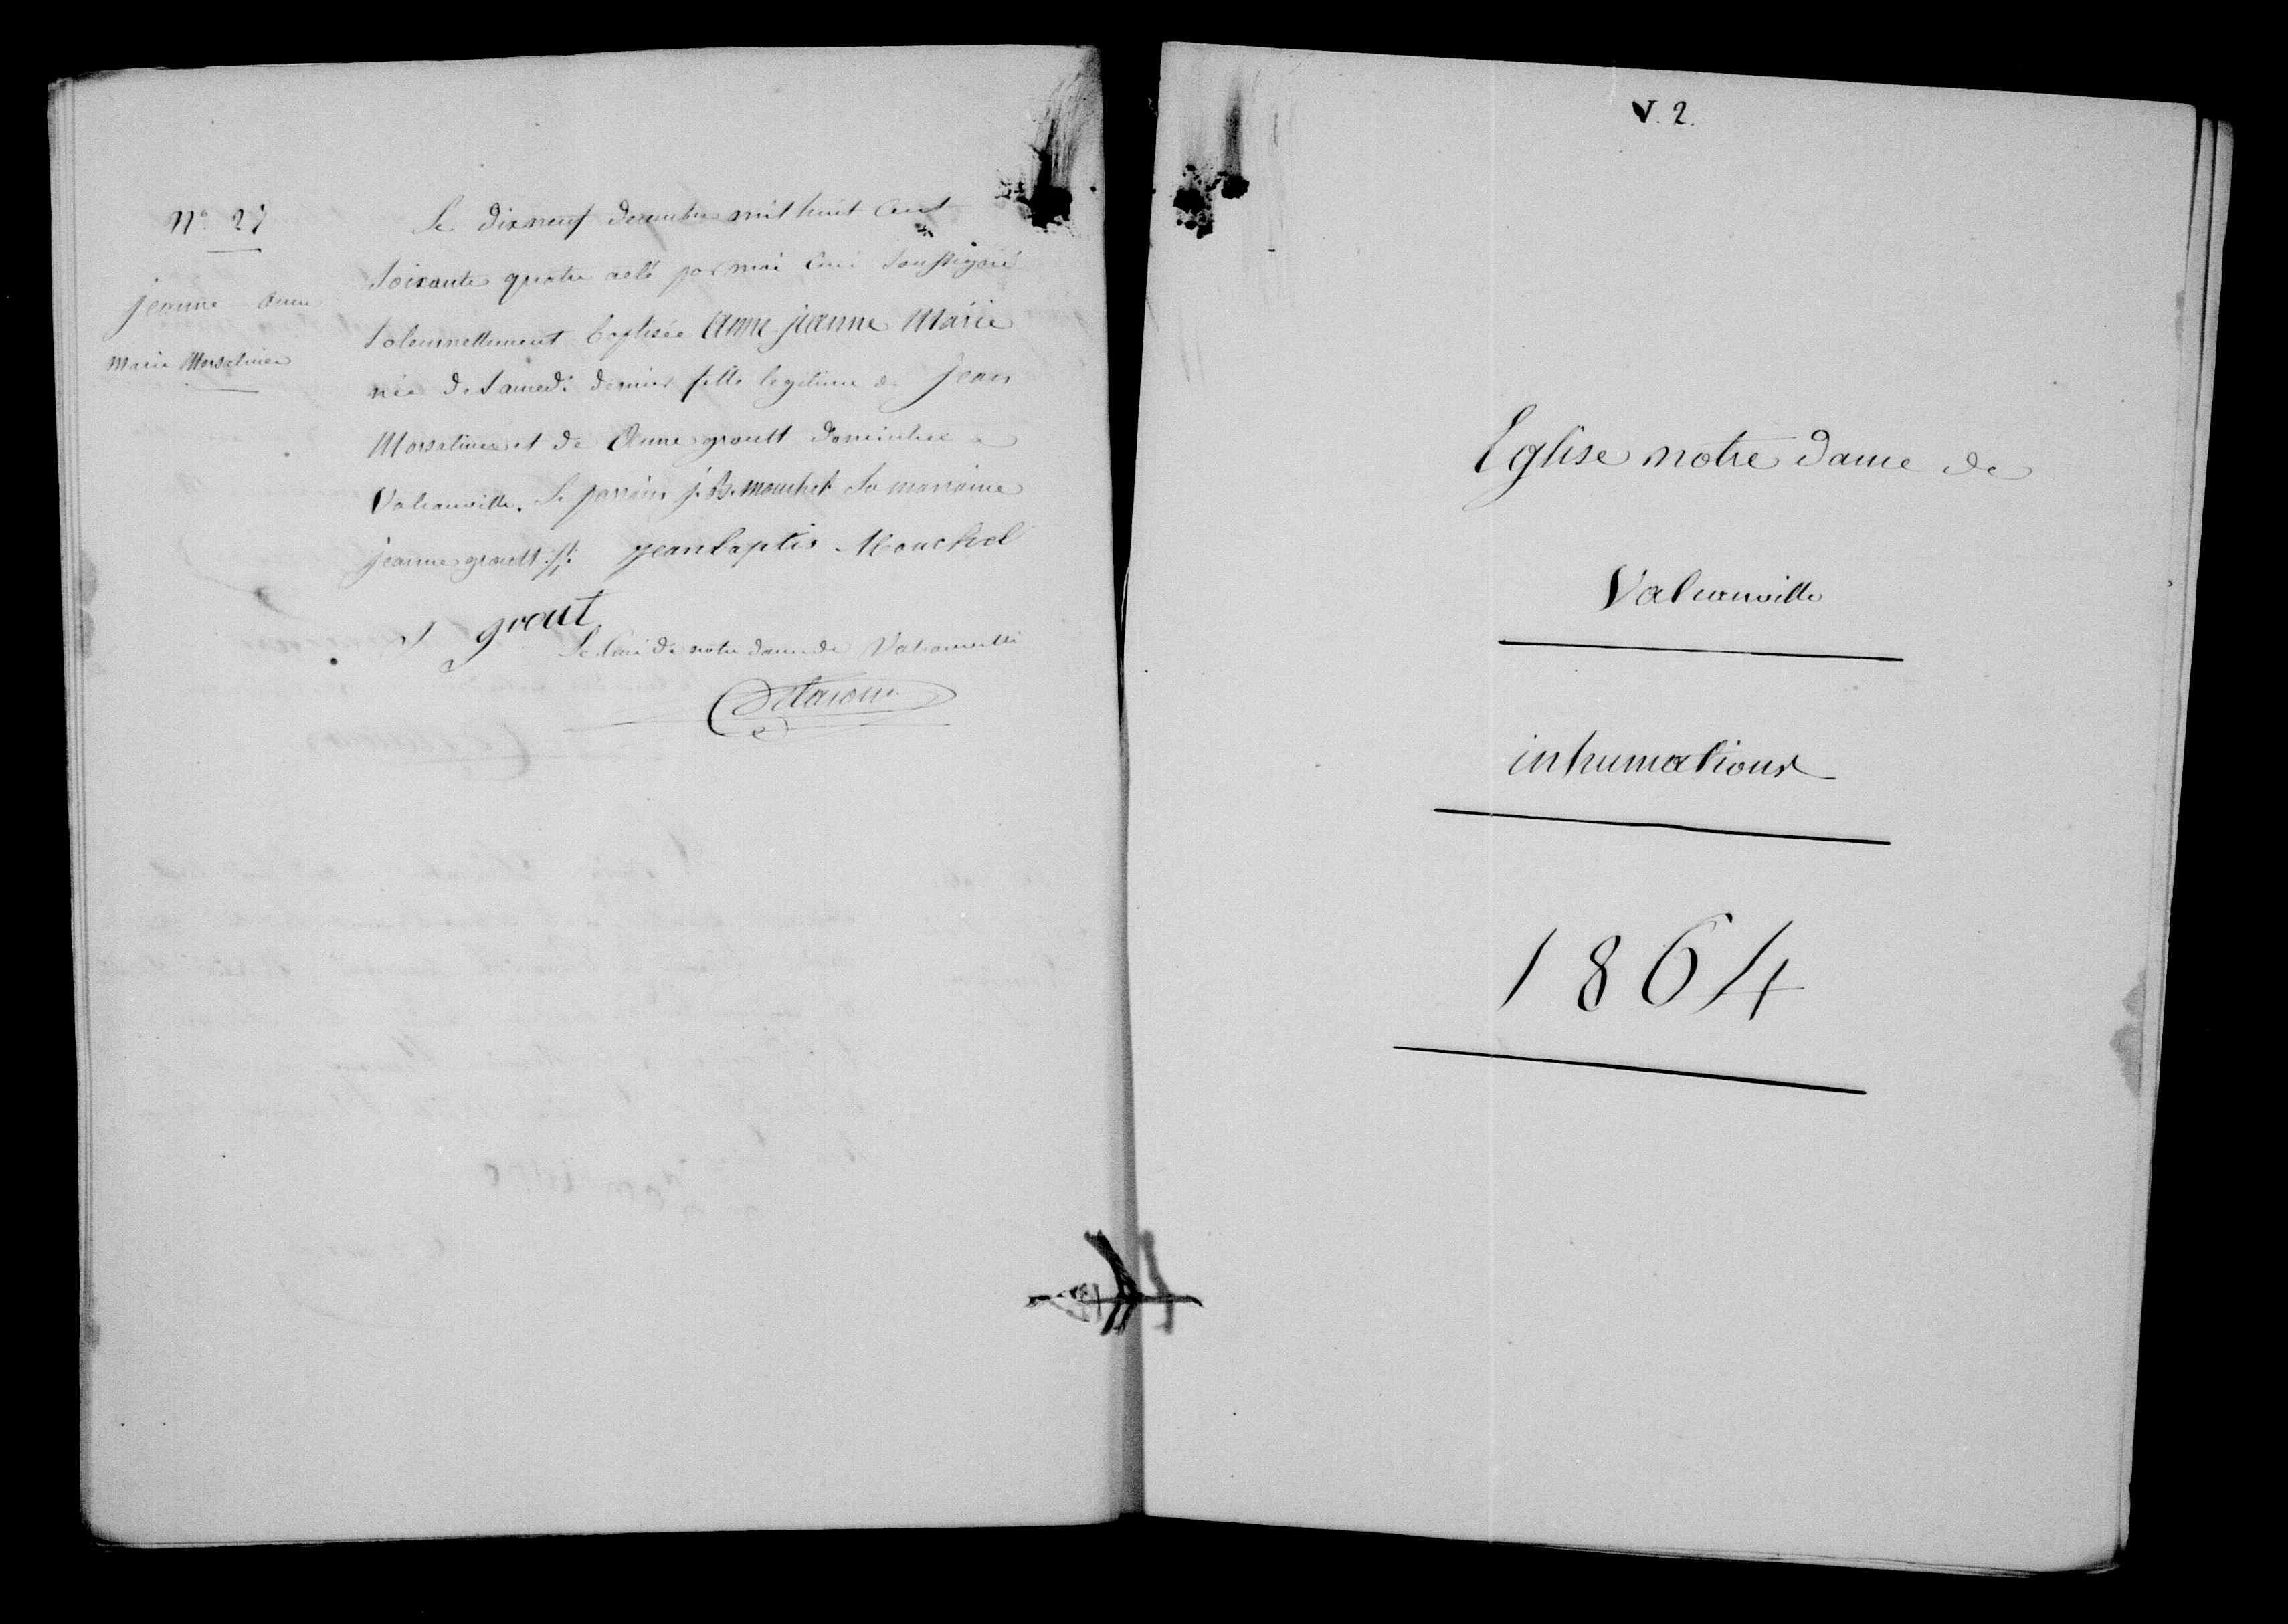 N° 27
jeanne anne
Marie Morsalines
Le dix neuf decembre mil huit cent
soixante quatre a été par moi curé soussigné
solennellement baptisée Anne jeanne Marie
née de samedi dernier fille legitime de Jean
Morsalines et de Anne groult domiciliés à
Valcanville. Le parrain j. B. mouchel La marraine
jeanne groult ./.
jean baptis Mouchel
J grout
Le Curé de notre dame de Valcanville
V. 2.
Eglise notre dame de
Valcanville
inhumations
1864